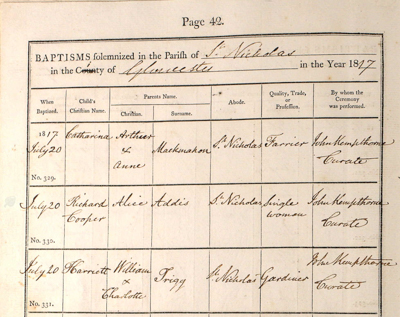 Page 42.
BAPTISMS solemnized in the Parish of St. Nicholas
in the County of Gloucester in the Year 1817
When Baptized. Child's Christian Name. Parents Name. Abode. Quality, Trade, or Profession. By whom the Ceremony was performed.
Christian. Surname.
1817 July 20 Catharina Arthur & Anne Mackmahon St Nicholas Farrier John Kempthorne Curate
No. 329.
July 20 Richard Cooper Alice Addis St Nicholas Single woman John Kempthorne Curate
No. 330.
July 20 Harriett William & Charlotte Trigg St Nicholas Gardiner John Kempthorne Curate
No. 331.